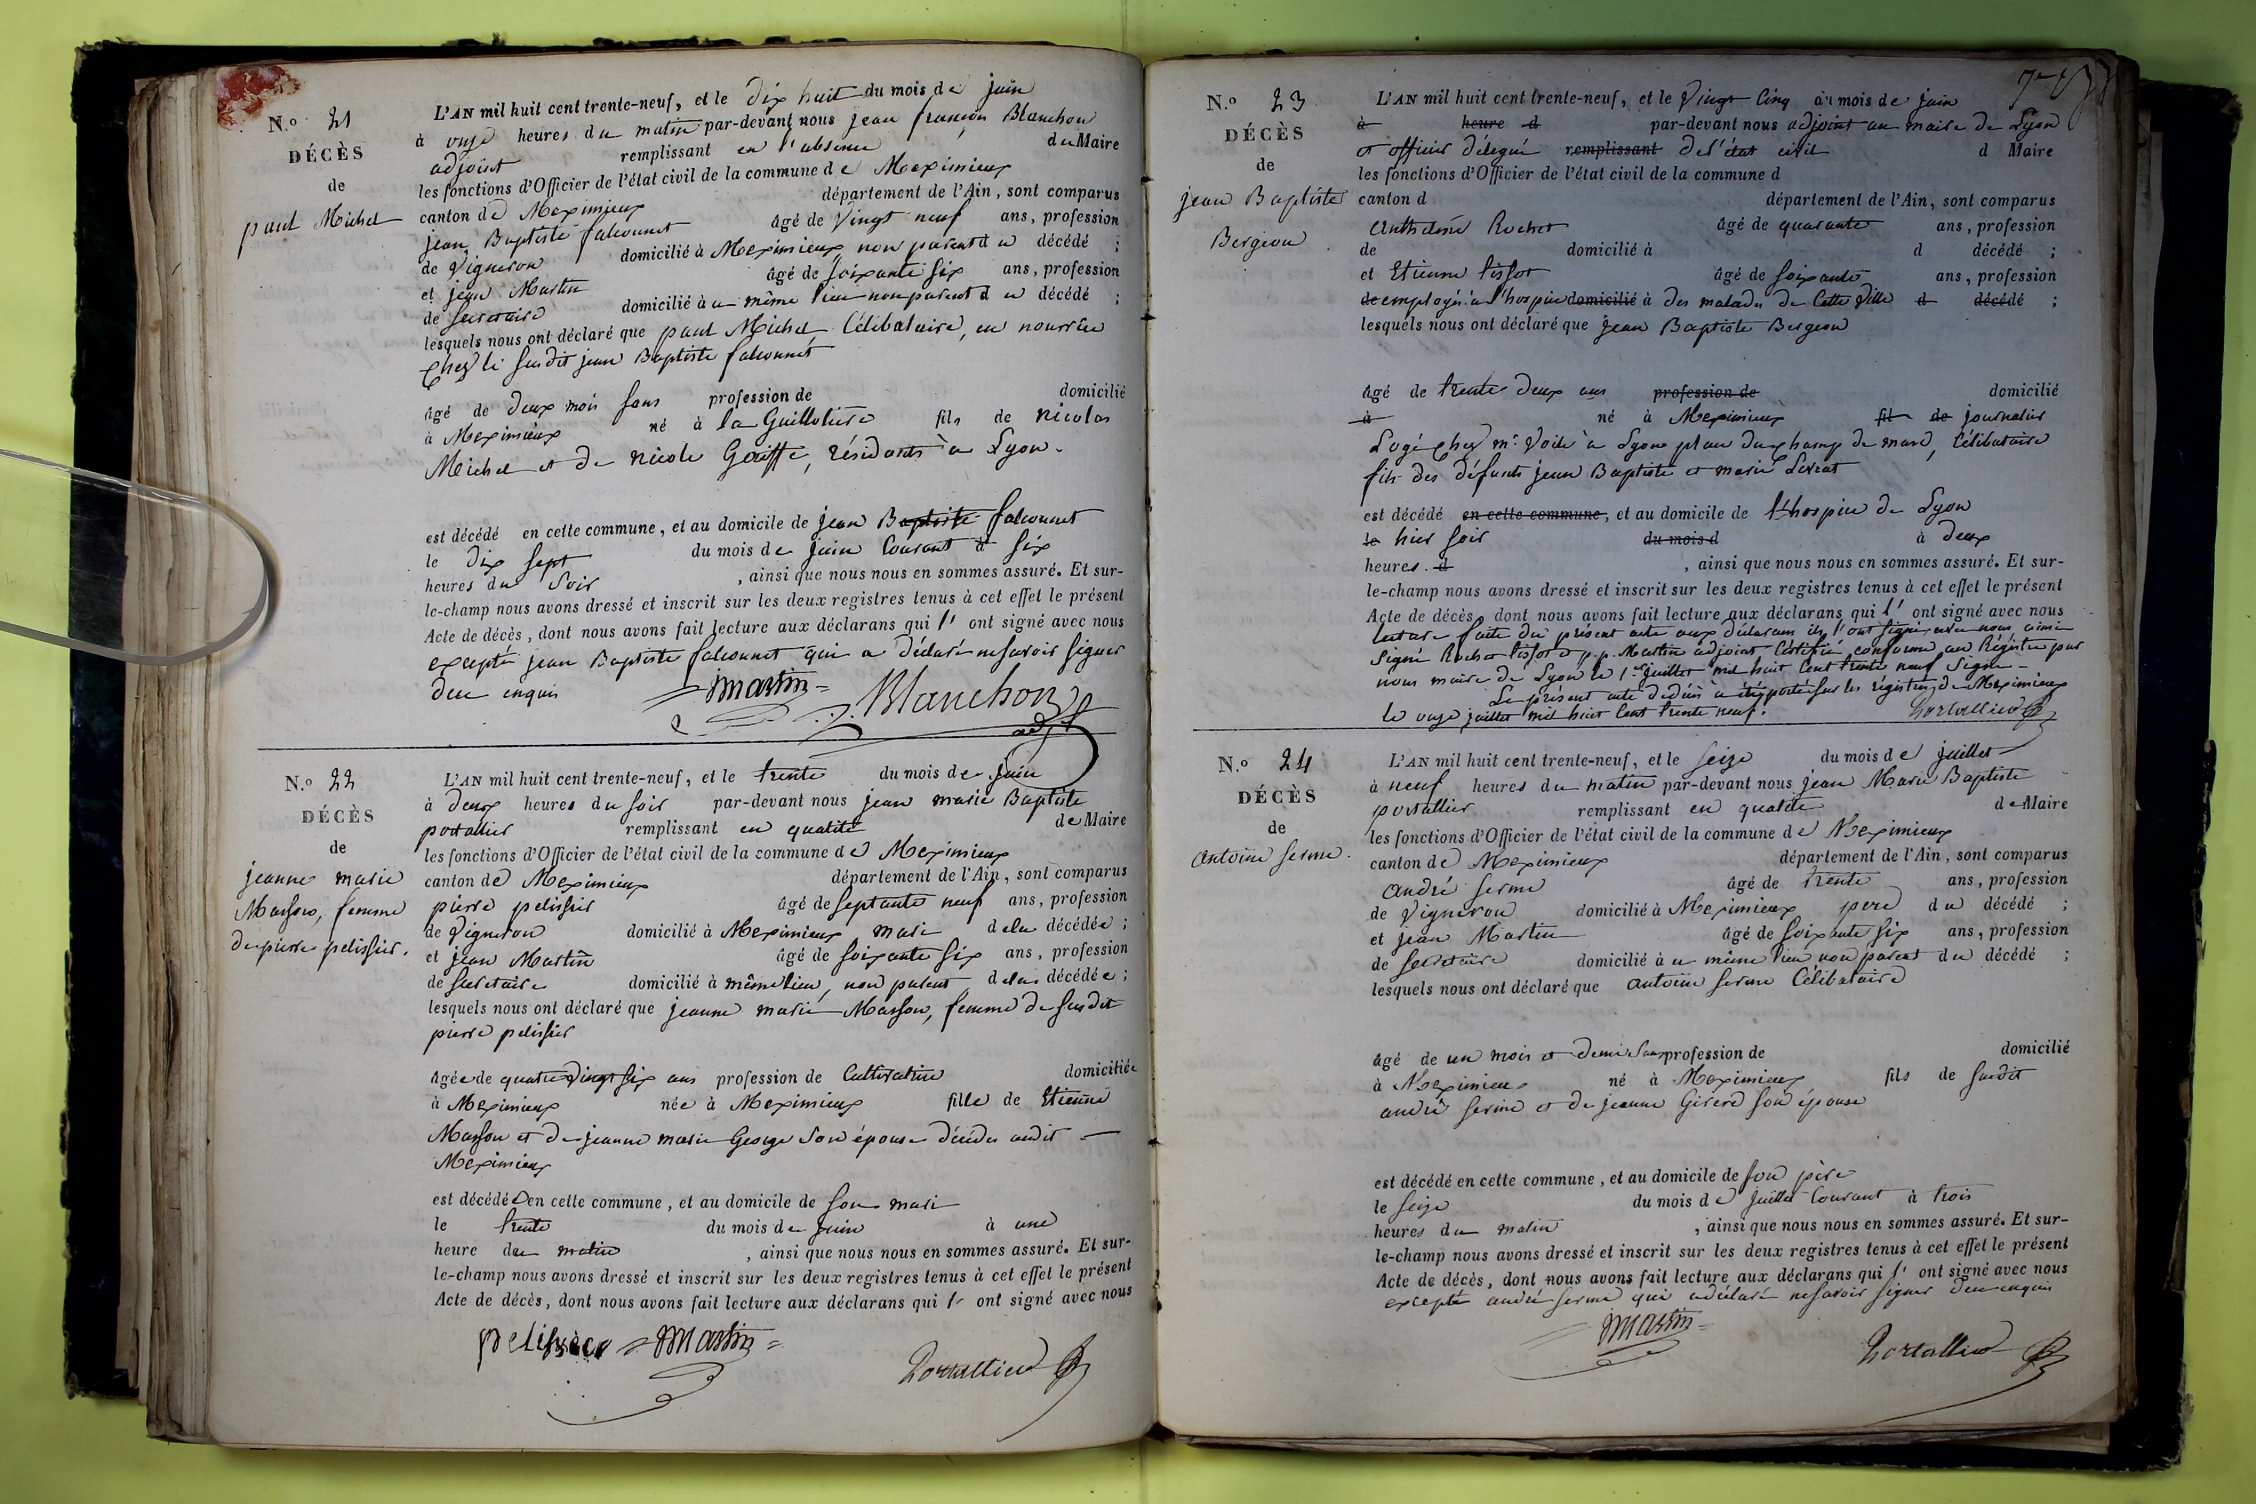 N.º 21
DÉCÈS
de
paul Michel
L'AN mil huit cent trente-neuf, et le dix huit du mois de juin
à onze heures du matin par-devant nous jean françois Blanchon
adjoint remplissant en l'absence du Maire
les fonctions d'Officier de l'état civil de la commune de Meximieux
canton de Meximieux département de l'Ain, sont comparus
jean Baptiste falconnet âgé de Vingt neuf ans, profession
de Vigneron domicilié à Meximieux non parent du décédé ;
et jean Martin âgé de soixante six ans, profession
de secretaire domicilié à u même lieu non parent du décédé ;
lesquels nous ont déclaré que paul Michel, Célibataire, en nourrice
Chez le susdit jean Baptiste falconnet
âgé de deux mois sans profession de domicilié
à Meximieux né à la Guillotière fils de nicolas
Michel et de nicole Gouffe, résidants à Lyon.
est décédé en cette commune, et au domicile de jean Baptiste falconnet
le dix sept du mois de juin Courant à six
heures du Soir , ainsi que nous nous en sommes assuré. Et sur-
le-champ nous avons dressé et inscrit sur les deux registres tenus à cet effet le présent
Acte de décès, dont nous avons fait lecture aux déclarans qui l' ont signé avec nous
excepté jean Baptiste falconnet qui a déclaré ne savoir signer
de ce enquis
Martin Blanchon
adjt
N.º 22
DÉCÈS
de
jeanne marie
Masson, femme
de pierre pelissier.
L'AN mil huit cent trente-neuf, et le trente du mois de juin
à deux heures du soir par-devant nous jean marie Baptiste
portallier remplissant en qualité de Maire
les fonctions d'Officier de l'état civil de la commune de Meximieux
canton de Meximieux département de l'Ain, sont comparus
pierre pelissier âgé de septante neuf ans, profession
de Vigneron domicilié à Meximieux mari de la décédée ;
et jean Martin âgé de soixante six ans, profession
de secretaire domicilié à même lieu, non parent de la décédée ;
lesquels nous ont déclaré que jeanne marie Masson, femme du susdit
pierre pelissier
âgée de quatre vingt six ans profession de Cultivatrice domiciliée
à Meximieux née à Meximieux fille de Etienne
Masson et de jeanne marie George son épouse décédés audit
Meximieux
est décédée en cette commune, et au domicile de son mari
le trente du mois de juin à une
heure du matin , ainsi que nous nous en sommes assuré. Et sur-
le-champ nous avons dressé et inscrit sur les deux registres tenus à cet effet le présent
Acte de décès, dont nous avons fait lecture aux déclarans qui l' ont signé avec nous
pelissier Martin
Portallier
N.º 23
DÉCÈS
de
jean Baptiste
Bergeon
L'AN mil huit cent trente-neuf, et le Vingt Cinq du mois de juin
à heure d par-devant nous adjoint au maire de Lyon
et officier délégué remplissant de l'état civil d Maire
les fonctions d'Officier de l'état civil de la commune d
canton d département de l'Ain, sont comparus
Anthelme Rochet âgé de quarante ans, profession
de domicilié à d décédé ;
et Etienne tissot âgé de soixante ans, profession
de employés à l'hospice domicilié à des malades de Cette Ville d décédé ;
lesquels nous ont déclaré que jean Baptiste Bergeon
âgé de trente deux ans profession de domicilié
à né à Meximieux fil de journalier
Logé chez mr. Voile à Lyon place du champ de mars, Célibataire
fils des défunts jean Baptiste et marie
est décédé en cette commune, et au domicile de l'hospice de Lyon
le hier soir du mois d à deux
heures. d , ainsi que nous nous en sommes assuré. Et sur-
le-champ nous avons dressé et inscrit sur les deux registres tenus à cet effet le présent
Acte de décès, dont nous avons fait lecture aux déclarans qui l' ont signé avec nous
lecture faite du présent acte aux déclarans ils l'ont signé avec nous ainsi
Signé Rochet tissot p.p. Martin adjoint Certifié conforme au Régistre par
nous maire de Lyon le 1er juillet mil huit Cent trente neuf Signé
Le présent acte de décès a été porté sur les régistres de Meximieux
le onze juillet mil huit Cent trente neuf. Portallier
N.º 24
DÉCÈS
de
antoine serme.
L'AN mil huit cent trente-neuf, et le seize du mois de juillet
à neuf heures du matin par-devant nous jean Marie Baptiste
portallier remplissant en qualité de Maire
les fonctions d'Officier de l'état civil de la commune de Meximieux
canton de Meximieux département de l'Ain, sont comparus
andré serme âgé de trente ans, profession
de Vigneron domicilié à Meximieux père du décédé ;
et jean Martin âgé de soixante six ans, profession
de secretaire domicilié à u même lieu non parent du décédé ;
lesquels nous ont déclaré que antoine serme Célibataire
âgé de un mois et demi sans profession de domicilié
à Meximieux né à Meximieux fils de susdit
andré serme et de jeanne Girerd son épouse
est décédé en cette commune, et au domicile de son père
le seize du mois de juillet Courant à trois
heures du matin , ainsi que nous nous en sommes assuré. Et sur-
le-champ nous avons dressé et inscrit sur les deux registres tenus à cet effet le présent
Acte de décès, dont nous avons fait lecture aux déclarans qui l' ont signé avec nous
excepté andré serme qui a déclaré ne savoir signer de ce enquis
Martin
Portallier